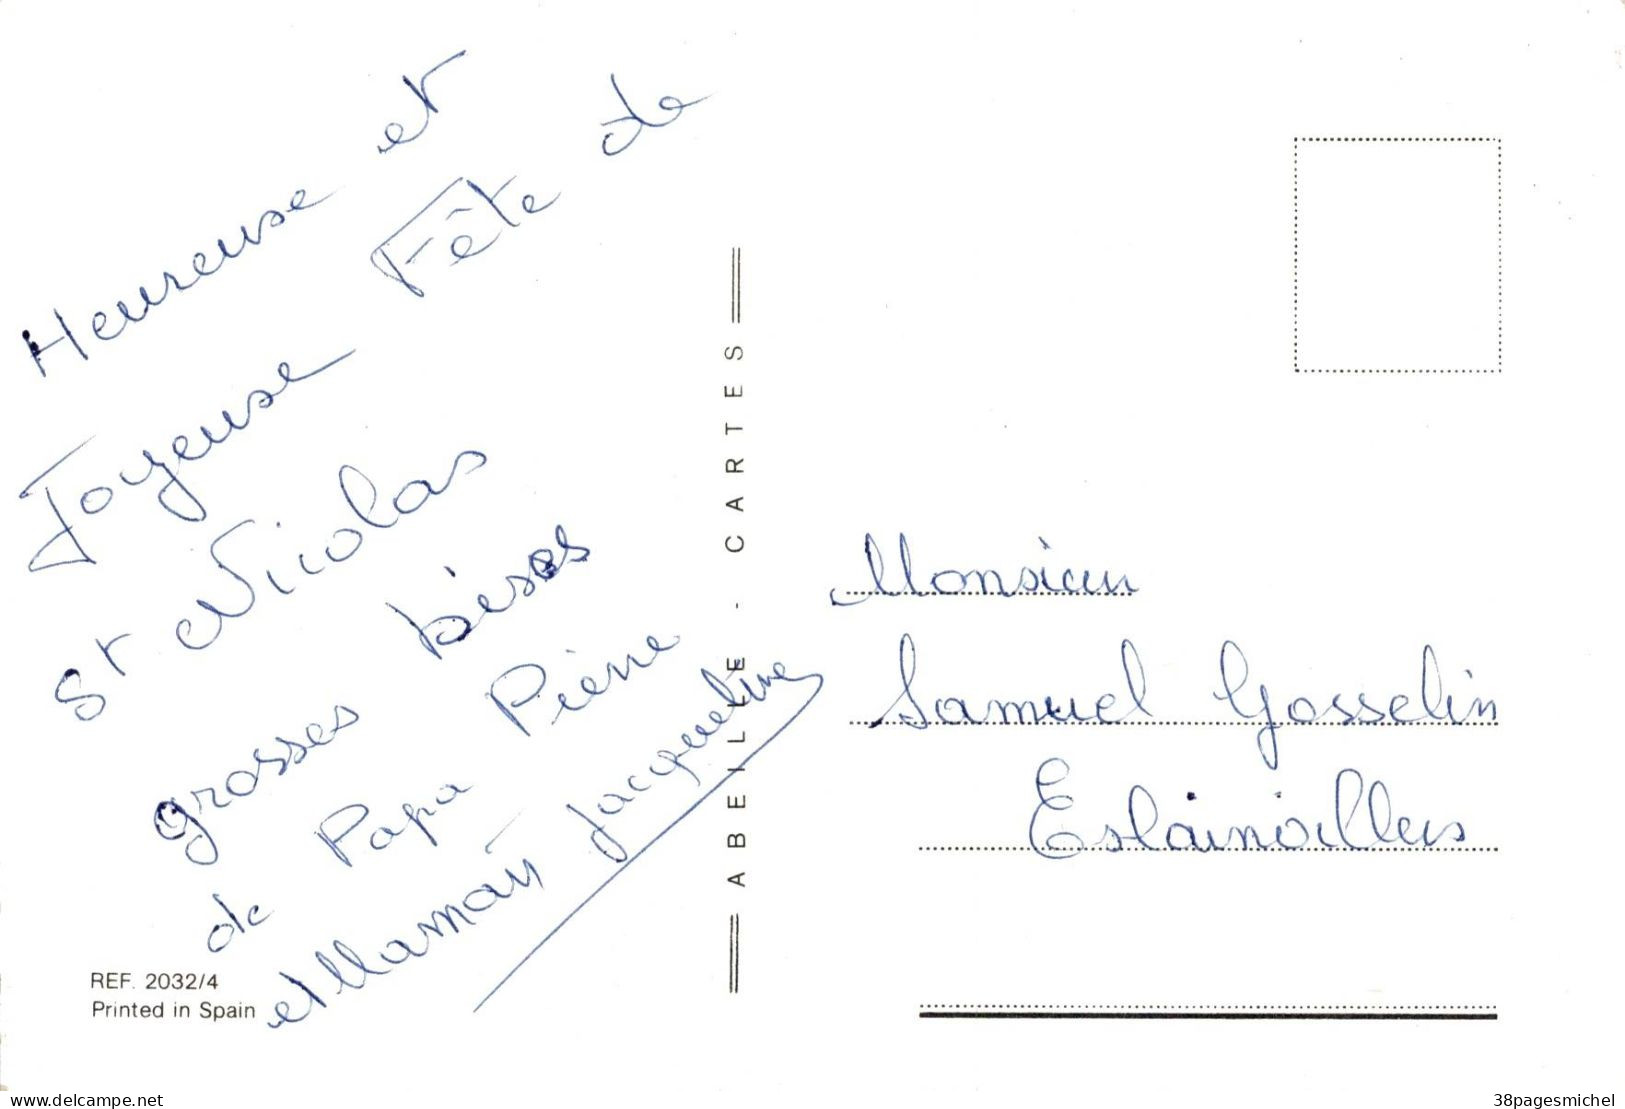 Heureuse et
Joyeuse Fête de
St Nicolas
grosses bises
de Papa Pierre
et Maman Jacqueline
REF. 2032/4
Printed in Spain
ABEILLE - CARTES
Monsieur
Samuel Gosselin
Eslainvillers
www.delcampe.net
38pagesmichel